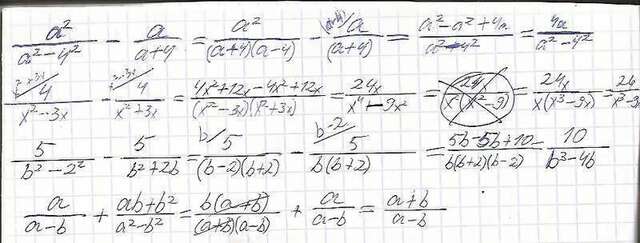 a²/(a²-4²) - a/(a+4) = a²/((a+4)(a-4)) - (a-4)/a/(a+4) = (a²-a²+4a)/(a²-4²) = 4a/(a²-4²)
x²+3x/4/(x²-3x) - x²-3x/4/(x²+3x) = (4x²+12x-4x²+12x)/((x²-3x)(x²+3x)) = 24x/(x⁴-9x²) = 24/(x²(x²-9)) = 24x/(x(x³-9x)) = 24/(x³-9x
5/(b²-2²) - 5/(b²+2b) = b/5/((b-2)(b+2)) - b-2/5/(b(b+2)) = (5b-5b+10)/(b(b+2)(b-2)) = 10/(b³-4b)
a/(a-b) + (ab+b²)/(a²-b²) = b(a+b)/((a+b)(a-b)) + a/(a-b) = (a+b)/(a-b)